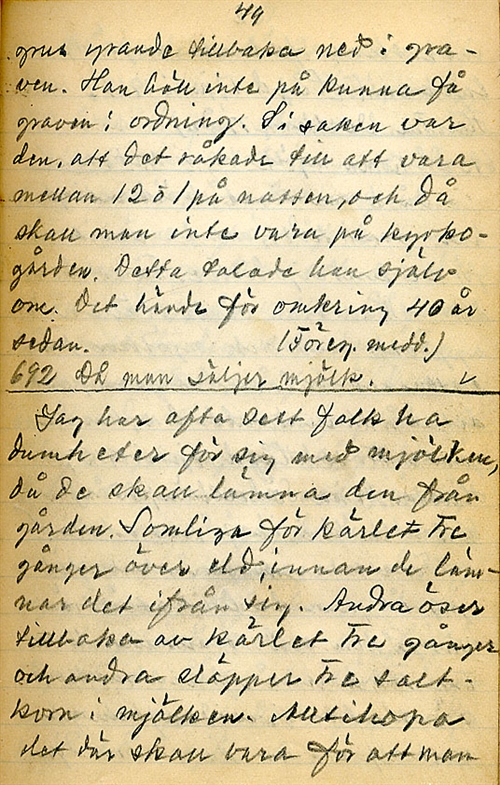 49
grus grande tillbaka ned i gra-
ven. Han höll inte på kunna få
graven i ordning. Si saken var
den, att det råkade till att vara
mellan 12 o 1 på natten, och då
skall man inte vara på kyrko-
gården. Detta talade han själv
om. Det hände för omkring 40 år
sedan. (Föreg. medd.)
692 Då man säljer mjölk. v
Jag har ofta sett folk ha
dumheter för sig med mjölken,
då de skall lämna den från
gården. Somliga för kärlet tre
gånger över eld, innan de läm-
nar det ifrån sig. Andra öser
tillbaka av kärlet tre gånger
och andra släpper tre salt-
korn i mjölken. Alltihopa
det där skall vara för att man